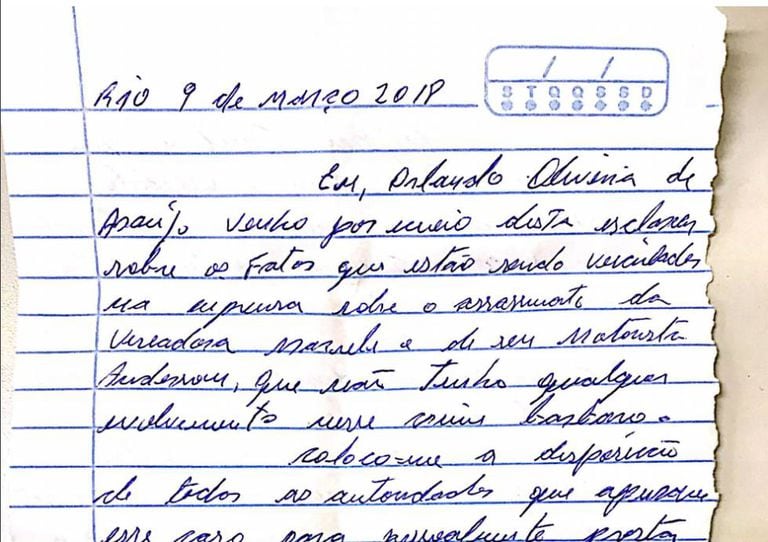 Rio 9 de março 2018
/ /
S T Q Q S S D
Eu, Orlando Oliveira de
Araújo venho por meio desta esclarecer
sobre os Fatos que estão sendo veiculados
na imprensa sobre o assassinato da
Vereadora Marielle e de seu Motorista
Anderson, que não Tenho qualquer
envolvimento nesse crime bárbaro.
coloco-me a disposição
de todos as autoridades que apuram
esse caso para pessoalmente prestar